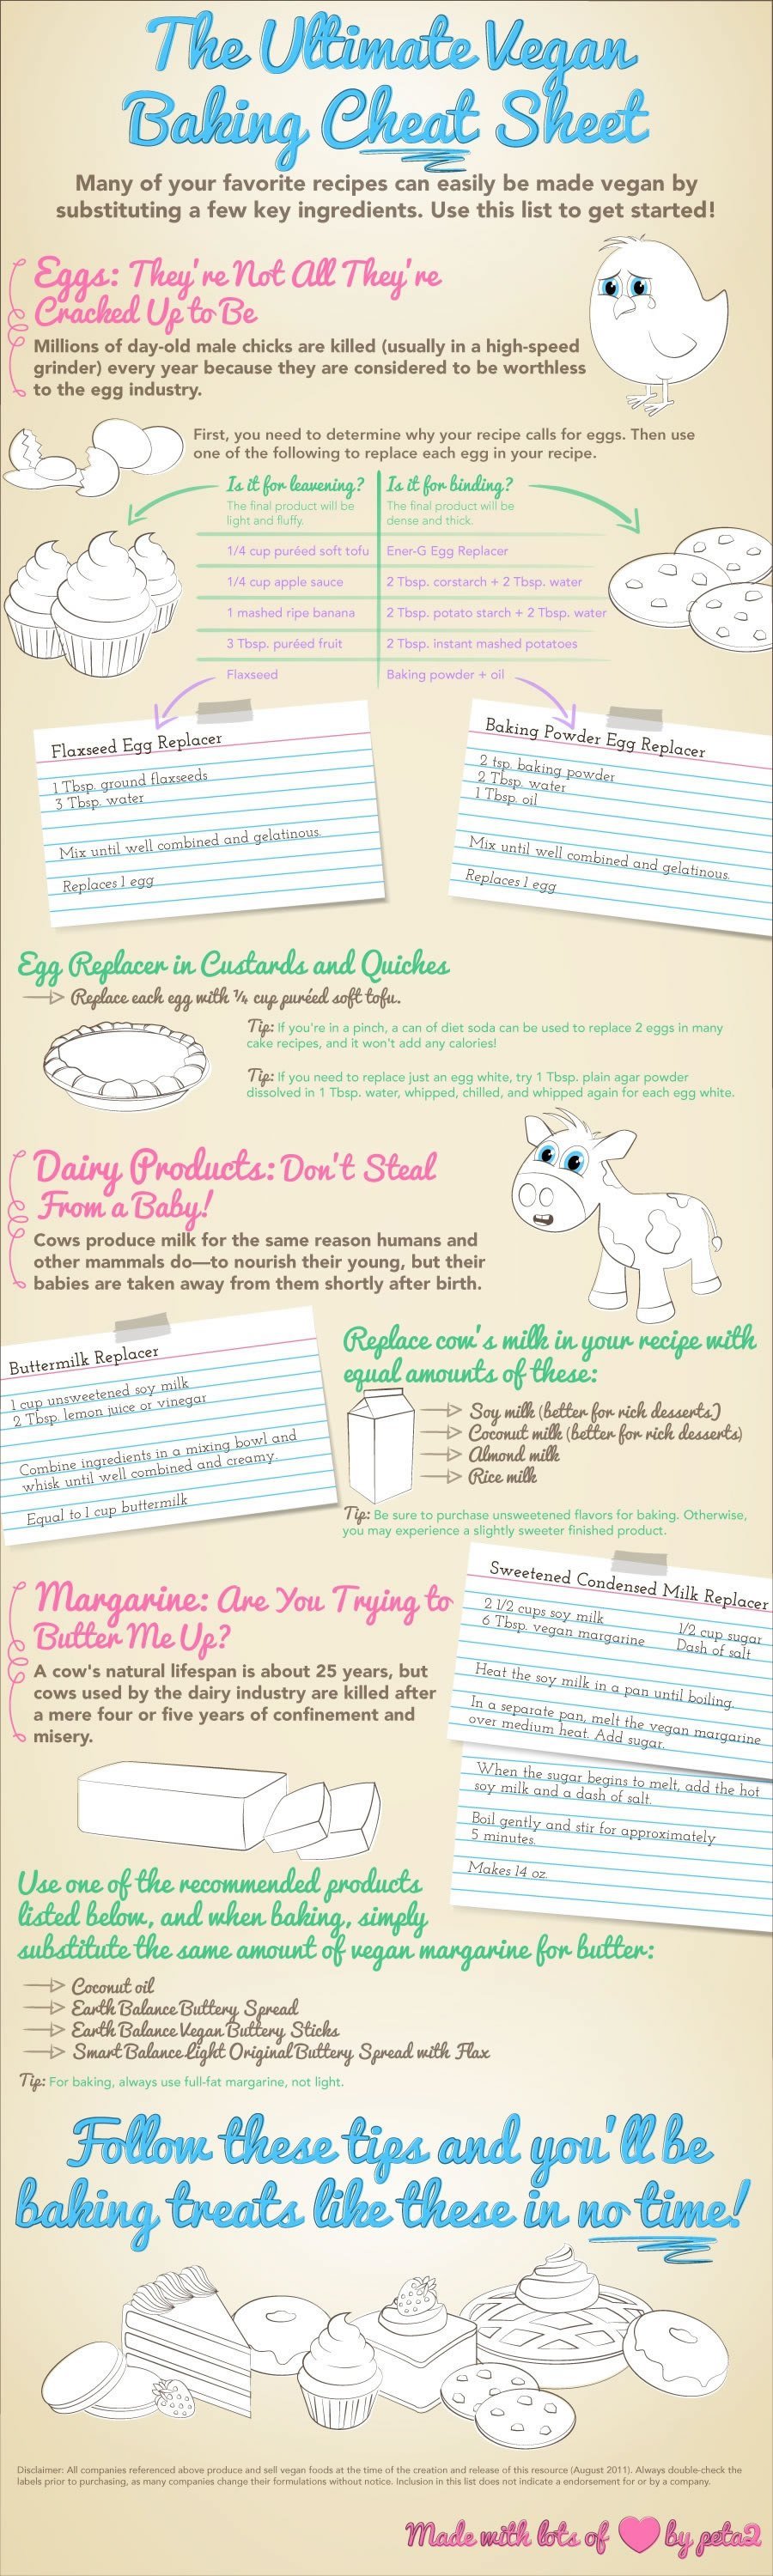 The Ultimate Vegan
Baking Cheat Sheet
Many of your favorite recipes can easily be made vegan by
substituting a few key ingredients. Use this list to get started!
Eggs: They're Not All They're
Cracked Up to Be
Millions of day-old male chicks are killed (usually in a high-speed
grinder) every year because they are considered to be worthless
to the egg industry.
First, you need to determine why your recipe calls for eggs. Then use
one of the following to replace each egg in your recipe.
Is it for leavening?
The final product will be
light and fluffy.
1/4 cup puréed soft tofu
1/4 cup apple sauce
1 mashed ripe banana
3 Tbsp. puréed fruit
Flaxseed
Is it for binding?
The final product will be
dense and thick.
Ener-G Egg Replacer
2 Tbsp. corstarch + 2 Tbsp. water
2 Tbsp. potato starch + 2 Tbsp. water
2 Tbsp. instant mashed potatoes
Baking powder + oil
Flaxseed Egg Replacer
1 Tbsp. ground flaxseeds
3 Tbsp. water
Mix until well combined and gelatinous.
Replaces 1 egg
Baking Powder Egg Replacer
2 tsp. baking powder
2 Tbsp. water
1 Tbsp. oil
Mix until well combined and gelatinous.
Replaces 1 egg
Egg Replacer in Custards and Quiches
Replace each egg with ¼ cup puréed soft tofu.
Tip: If you're in a pinch, a can of diet soda can be used to replace 2 eggs in many
cake recipes, and it won't add any calories!
Tip: If you need to replace just an egg white, try 1 Tbsp. plain agar powder
dissolved in 1 Tbsp. water, whipped, chilled, and whipped again for each egg white.
Dairy Products: Don't Steal
From a Baby!
Cows produce milk for the same reason humans and
other mammals do—to nourish their young, but their
babies are taken away from them shortly after birth.
Buttermilk Replacer
1 cup unsweetened soy milk
2 Tbsp. lemon juice or vinegar
Combine ingredients in a mixing bowl and
whisk until well combined and creamy.
Equal to 1 cup buttermilk
Replace cow's milk in your recipe with
equal amounts of these:
Soy milk (better for rich desserts)
Coconut milk (better for rich desserts)
Almond milk
Rice milk
Tip: Be sure to purchase unsweetened flavors for baking. Otherwise,
you may experience a slightly sweeter finished product.
Margarine: Are You Trying to
Butter Me Up?
A cow's natural lifespan is about 25 years, but
cows used by the dairy industry are killed after
a mere four or five years of confinement and
misery.
Sweetened Condensed Milk Replacer
2 1/2 cups soy milk 1/2 cup sugar
6 Tbsp. vegan margarine Dash of salt
Heat the soy milk in a pan until boiling.
In a separate pan, melt the vegan margarine
over medium heat. Add sugar.
When the sugar begins to melt, add the hot
soy milk and a dash of salt.
Boil gently and stir for approximately
5 minutes.
Makes 14 oz.
Use one of the recommended products
listed below, and when baking, simply
substitute the same amount of vegan margarine for butter:
Coconut oil
Earth Balance Buttery Spread
Earth Balance Vegan Buttery Sticks
Smart Balance Light Original Buttery Spread with Flax
Tip: For baking, always use full-fat margarine, not light.
Follow these tips and you'll be
baking treats like these in no time!
Disclaimer: All companies referenced above produce and sell vegan foods at the time of the creation and release of this resource (August 2011). Always double-check the
labels prior to purchasing, as many companies change their formulations without notice. Inclusion in this list does not indicate a endorsement for or by a company.
Made with lots of by peta2